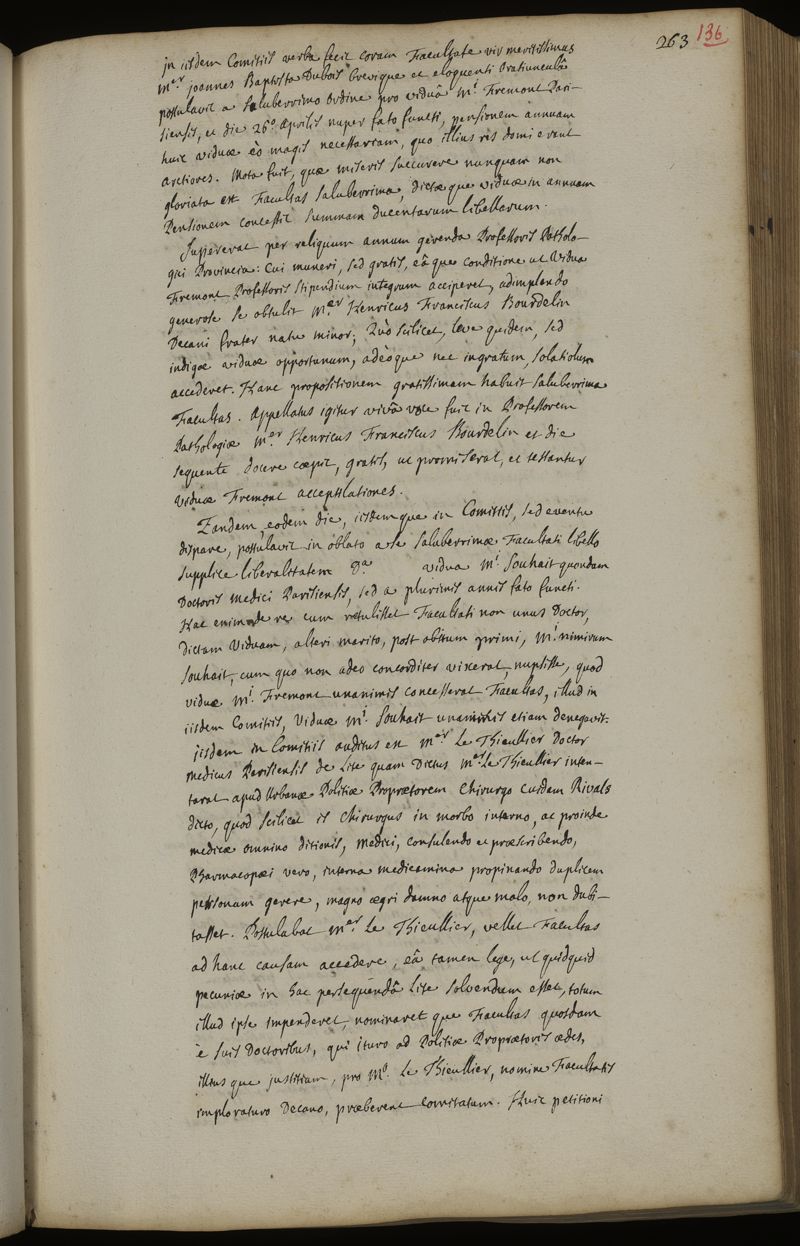 263 136
in iisdem Comitiis verba fecit coram Facultate vir meritissimus
m.er joannes Baptista Dubois brevique et eloquenti oratiunculâ
postulavit a saluberrimo ordine pro viduâ m.i Fremont Pari-
siensis, et die 26.a aprilis nuper fato functi, pensionem annuam
huic viduæ èo magis necessariam, quo illius res domi erant
arctiores. Mota fuit, quæ miseris succurere nunquam non
gloriata est Facultas saluberrima, dictæque viduæ in annuam
Pensionem concessit summam ducentarum libellarum.
Supererat per reliquum annum gerenda Professoris Patholo-
giæ Provincia: Cui muneri, sed gratis, eâque conditione ut vidua
Fremont Professoris stipendium integrum acciperet, adimplendo
generose se obtulit m.er Henricus Franciscus Bourdelin
Decani frater natu minor; Quò scilicet, leve quidem, sed
indigæ viduæ opportunum, adèoque nec ingratum, solatiolum
accederet. Hanc propositionem gratissimam habuit saluberrima
Facultas. Appellatus igitur vivâ voce fuit in Professorem
Pathologiæ m.er Henricus Franciscus Bourdelin et die
sequente docere cœpit, gratis, ut promiserat, et testantur
viduæ Fremont acceptilationes.
Tandem eodem die, iisdemque in Comitiis, sed eventu
dispare, postulavit in oblato a se saluberrimæ Facultati libello
supplice liberalitatem D.a vidua m.i Souhait quondam
Doctoris medici Parisiensis, sed a plurimis annis fato functi.
Hac enim de re cum retulisset Facultati non unus Doctor,
dictam viduam, alteri marito, post obitum primi, m.i nimirum
Souhait, cum quo non adeo concorditer vixerat, nupsisse, quod
viduæ m.i Fremont unanimis concesserat Facultas, illud in
iisdem Comitiis, viduæ m.i Souhait unanimis etiam denegavit.
iisdem in Comitiis auditus est m.er Le Thieullier Doctor
medicus Parisiensis de Lite quam Dictus m.er Le Thieullier inten-
tarat apud Urbanæ Politiæ Proprætorem Chirurgo cuidam Rivals
dicto, quod scilicet is chirurgus in morbo interno, ac proinde
medicæ omnino ditionis, medici, consulendo et præscribendo,
Pharmacopæi vero, interna medicamina propinando duplicem
personam gerere, magno ægri damno atque malo, non dubi-
tasset. Postulabat m.er Le Thieullier, vellet Facultas
ad hanc causam accedere, eâ tamen lege, ut quidquid
pecuniæ in hac persequendâ Lite solvendum esset, totum
illud ipse impenderet, nominaretque Facultas quosdam
è suis Doctoribus, qui ituro ad Politiæ Proprætoris ædes,
illiusque justitiam, pro m.o Le Thieullier, nomine Facultatis
imploraturo Decano, præberent comitatum. Huic petitioni